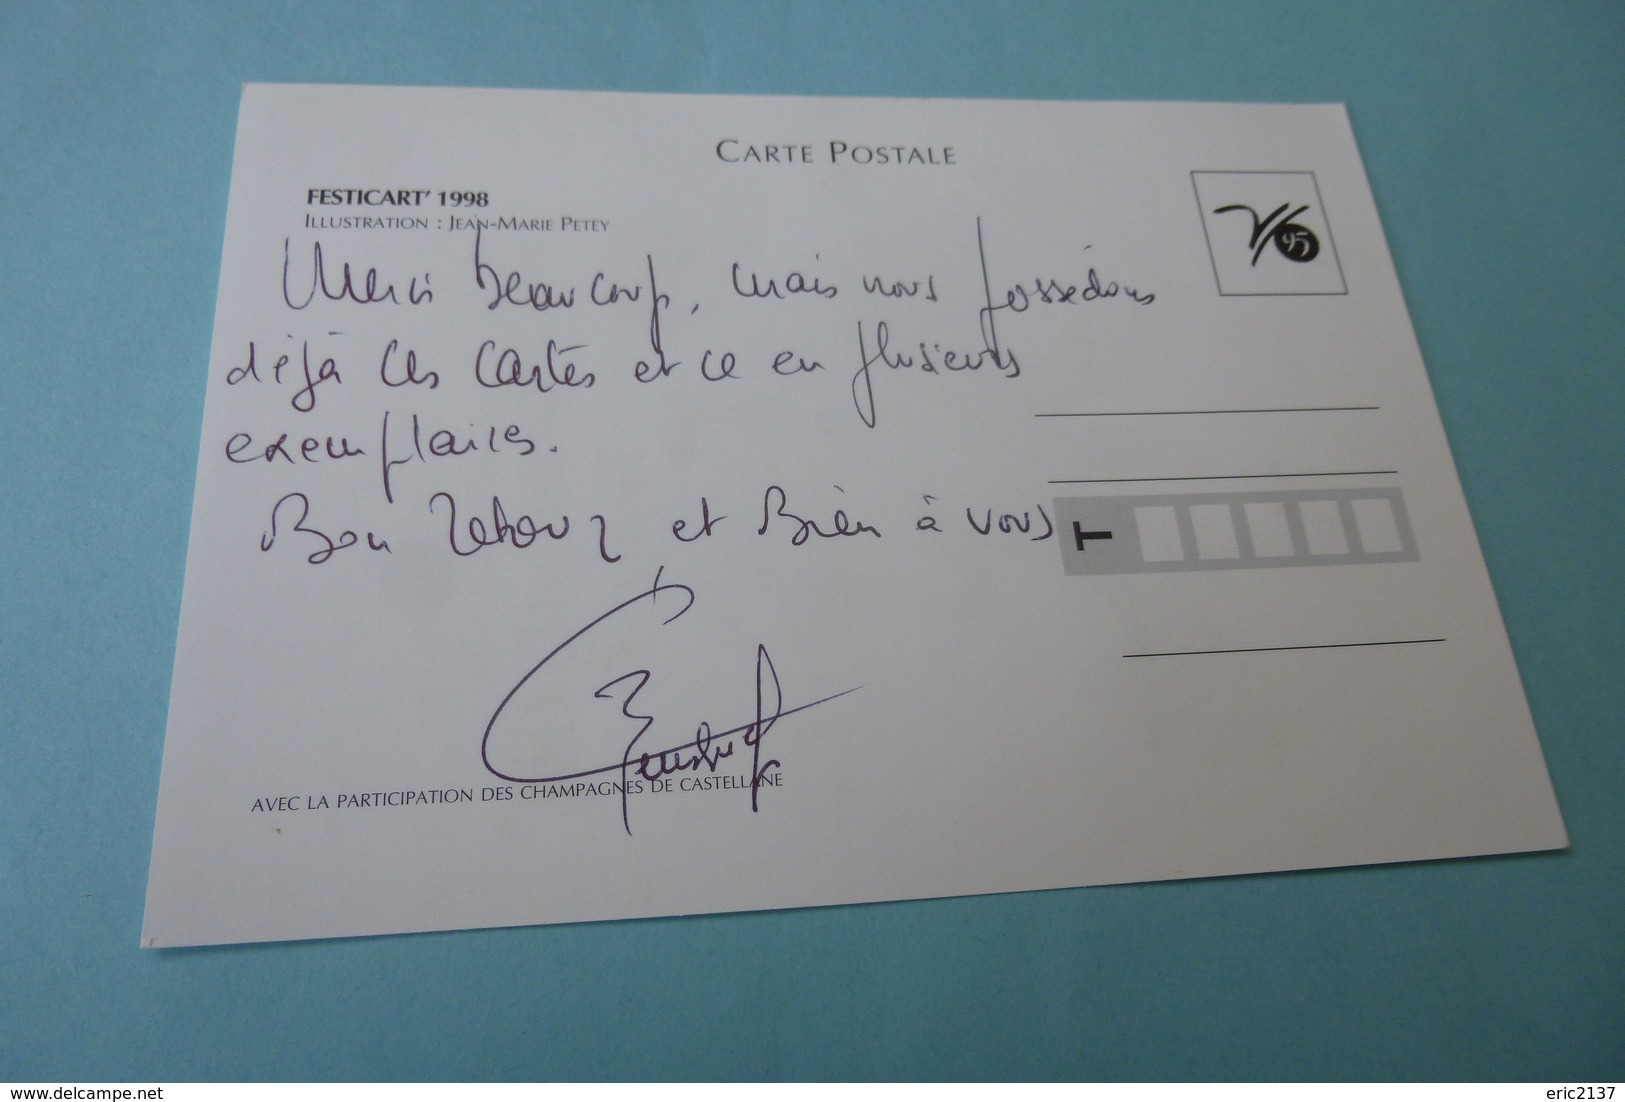 CARTE POSTALE
FESTICART' 1998
ILLUSTRATION : JEAN-MARIE PETEY
95
Merci beaucoup, mais nous possédons
déjà ces cartes et ce en plusieurs
exemplaires.
Bon retour et Bien à vous
T
AVEC LA PARTICIPATION DES CHAMPAGNES DE CASTELLANE
delcampe.net
eric2137